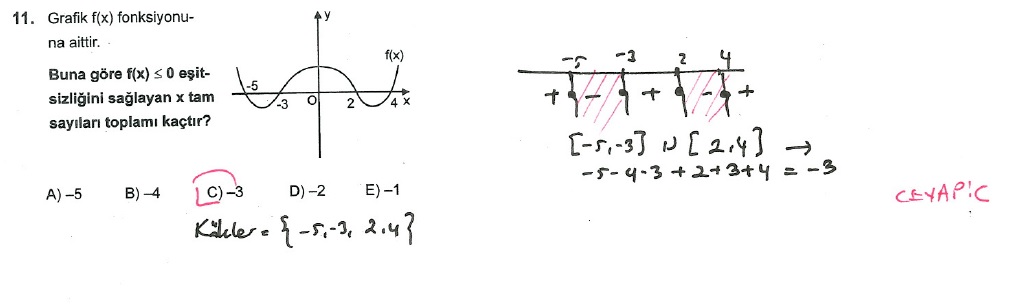 11. Grafik f(x) fonksiyonu-
na aittir.
Buna göre f(x) ≤ 0 eşit-
sizliğini sağlayan x tam
sayıları toplamı kaçtır?
y
f(x)
-5 -3 O 2 4 x
A) –5 B) –4 C) –3 D) –2 E) –1
Kökler = {-5,-3, 2,4}
-5 -3 2 4
+ - + - +
[-5,-3] U [2,4] →
-5-4-3+2+3+4 = -3
CEVAP:C